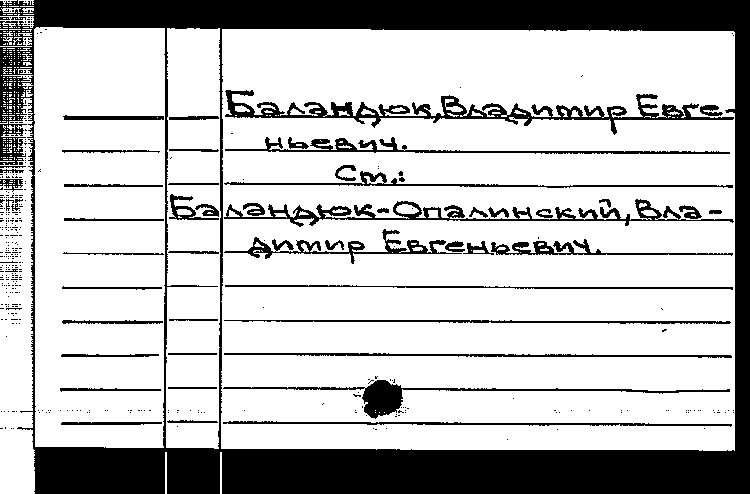 Баландюк, Владимир Евге-
ньевич.
См.:
Баландюк-Опалинский, Вла-
димир Евгеньевич.